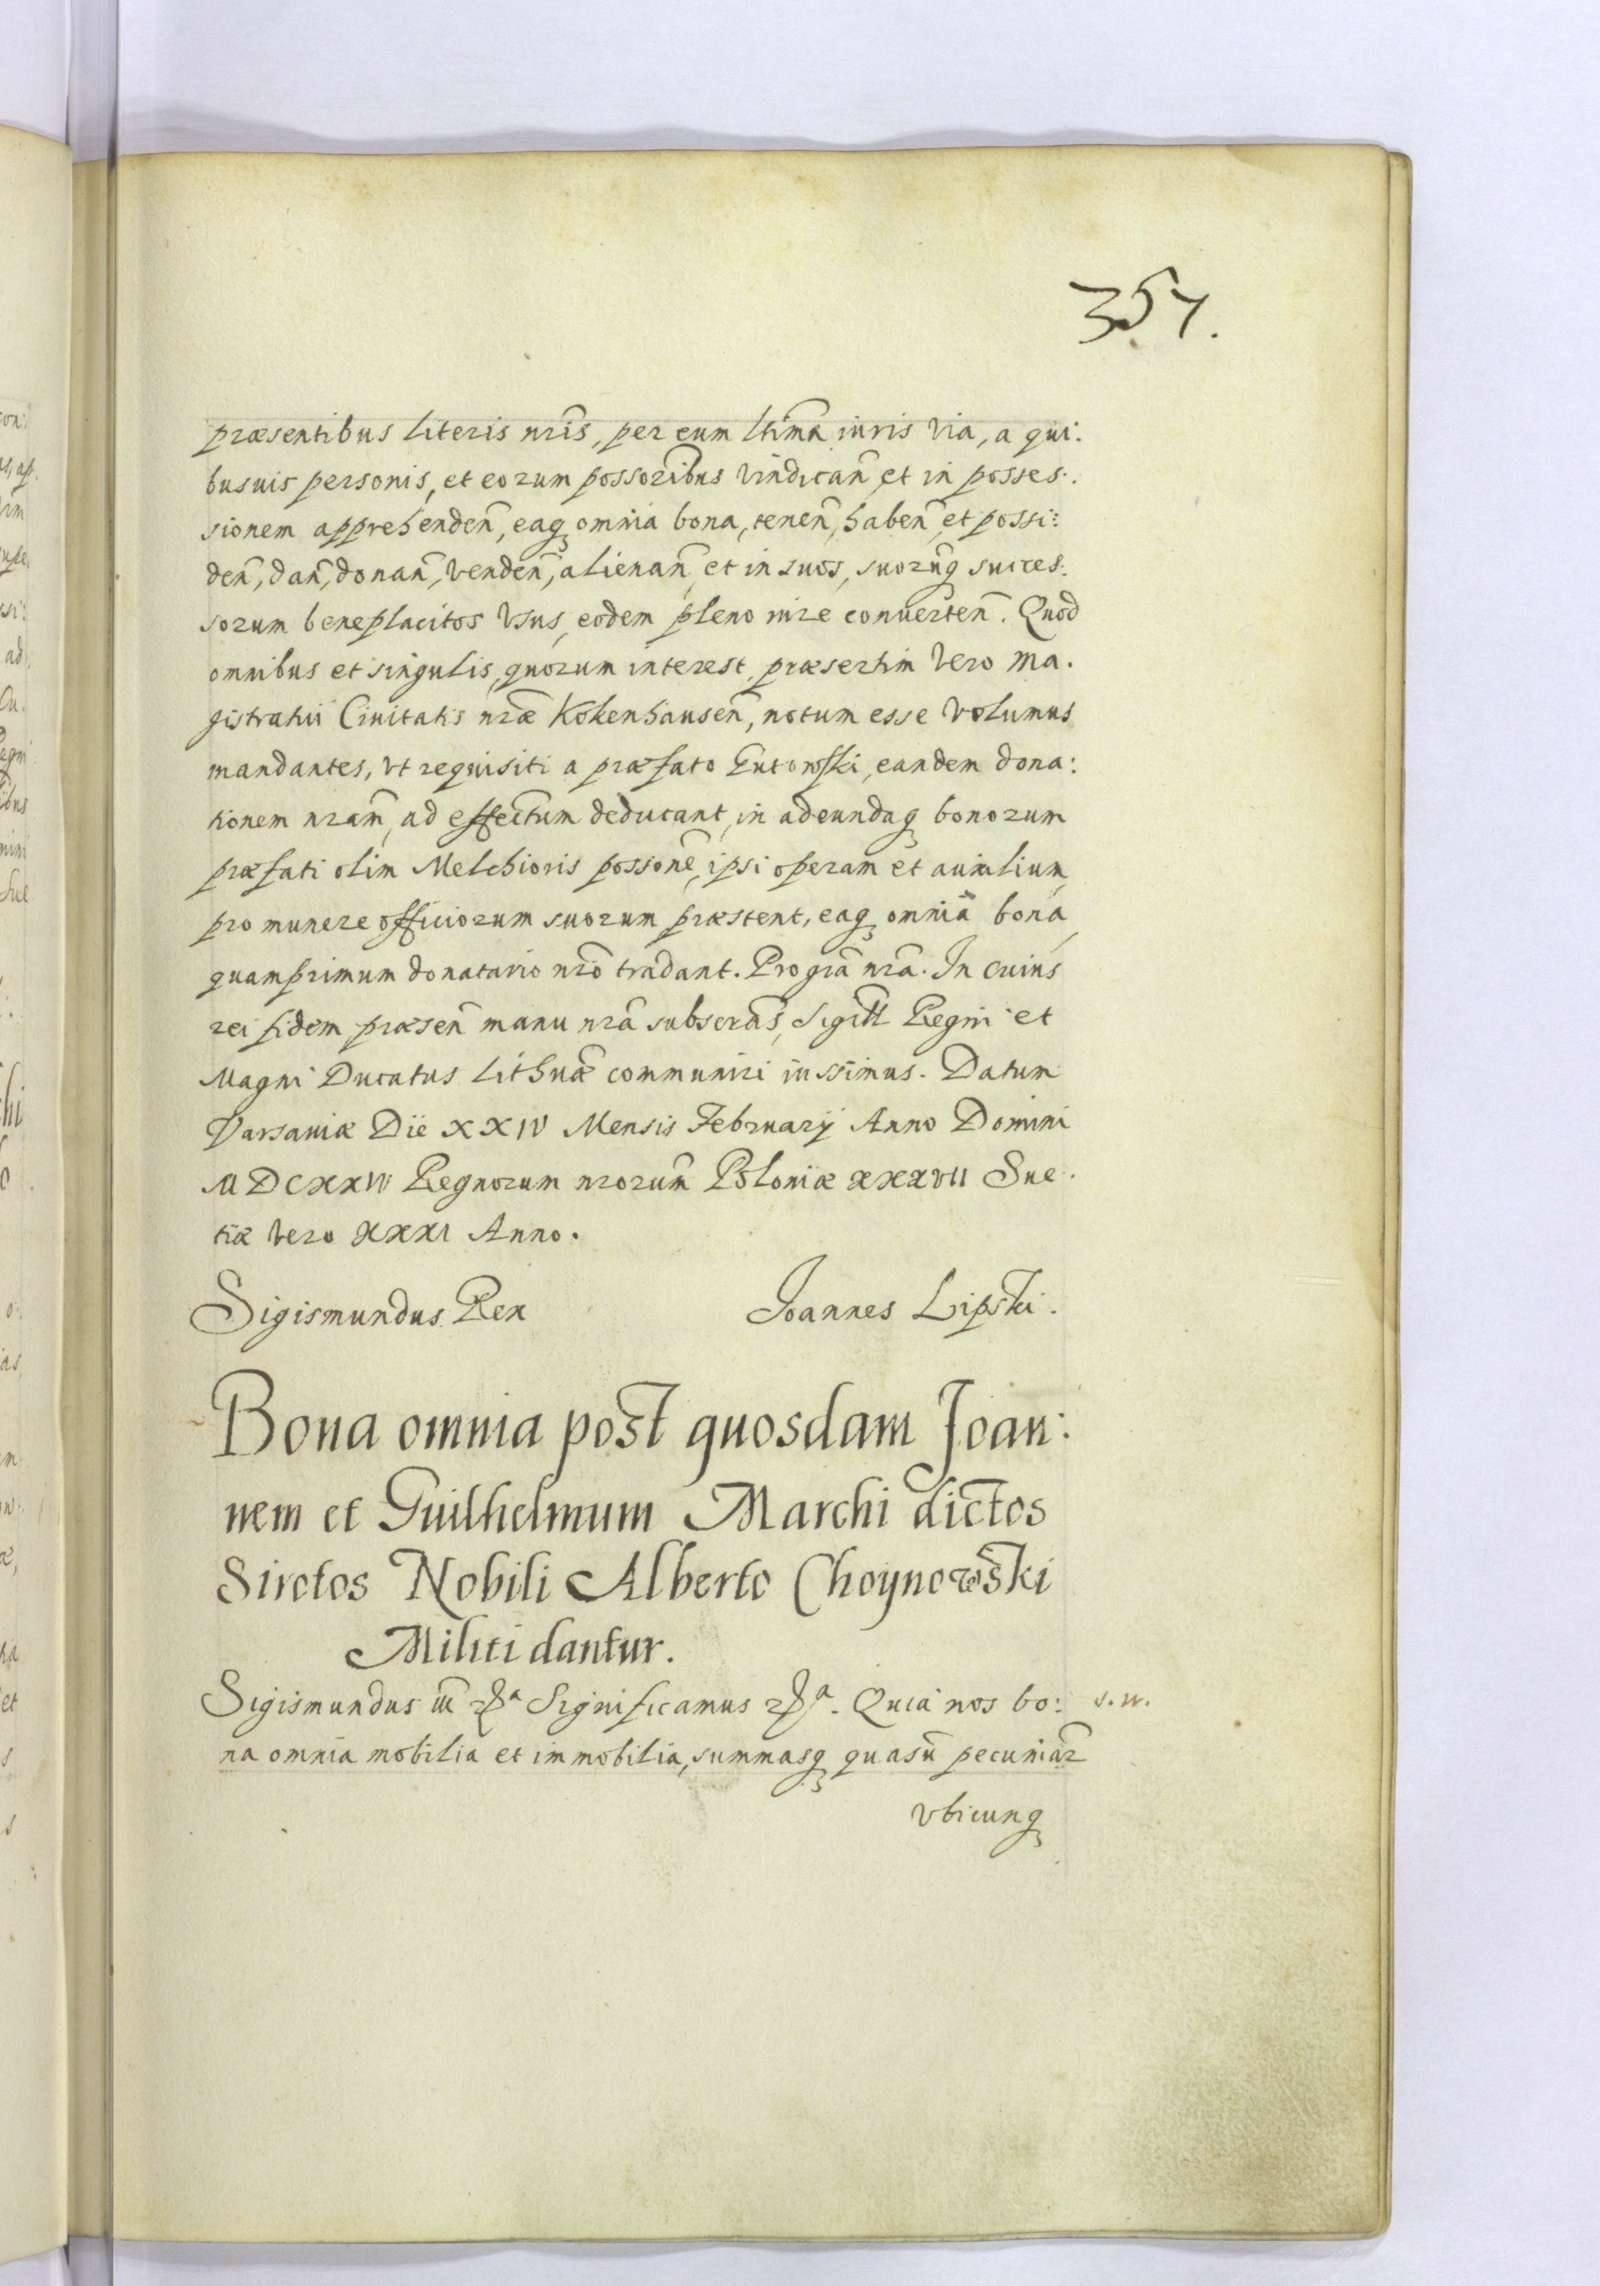 357.
præsentibus literis nr̃is, per eum ltim̃a iuris via, a qui:
busuis personis, et eorum possorĩbus vindicañ et in posses:
sionem apprehendeñ, eaq₃ omnia bona, teneñ, habeñ et possi:
deñ, dañ, donañ, vendeñ, alienañ et in suos, suorumq₃ succes:
sorum beneplacitos vsus, eodem pleno iure conuerteñ. Quod
omnibus et singulis, quorum interest, præsertim vero Ma:
gistratui Ciuitatis nr̃æ Kokenhauseñ, notum esse volumus
mandantes, vt requisiti a præfato Gutowski, eandem dona:
tionem nr̃am, ad effectum deducant, in adeundaq₃ bonorum
præfati olim Melchioris possionẽ, ipsi operam et auxilium,
pro munere officiorum suorum præstent, eaq₃ omnia bona,
quamprimum donatario nr̃o tradant. Pro gr̃a nr̃a. In cuius
rei fidem præseñ manu nr̃a subscrañs, Sigill̃ Regni et
Magni Ducatus Lithuæ̃ communiri iussimus. Datum
Varsauiæ Die XXIV Mensis February Anno Domini
MDCXXIV Regnorum nr̃orum Poloniæ XXXVII Sue:
tiæ vero XXXI Anno.
Sigismundus Rex Joannes Lipski.
Bona omnia post quosdam Joan:
nem et Guilhelmum Marchi dictos
Sirotos Nobili Alberto Choynowski
Militi dantur.
Sigismundus III Significamus Quia nos bo: s. n.
na omnia mobilia et immobilia, summasq₃ quasũ pecuniar̃
vbicunq₃